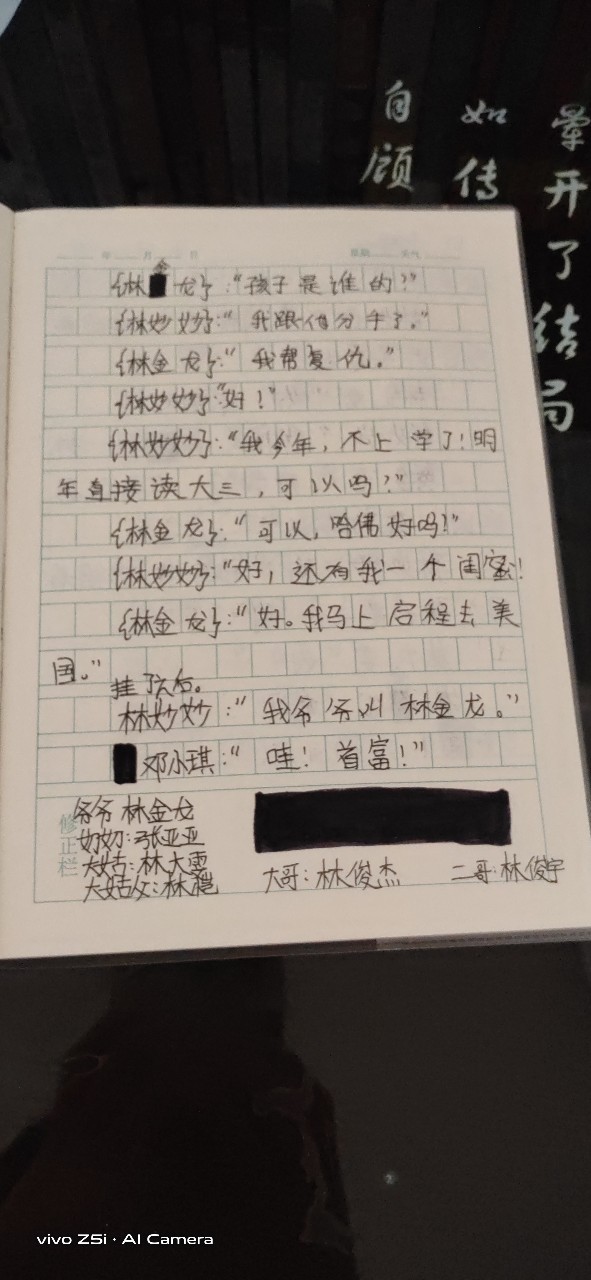 自 如 晕
顾 传 开
了
结
局
年 月 日
{林金龙}:“孩子是谁的?”
{林妙妙}:“我跟他分手了。”
{林金龙}:“我帮复仇。”
{林妙妙}:“好!”
{林妙妙}:“我今年,不上学了!明
年直接读大三,可以吗?”
{林金龙}:“可以,哈佛好吗!”
{林妙妙}:“好,还有我一个闺蜜!
{林金龙}:“好。我马上启程去美
国。”
挂了之后。
林妙妙:“我爷爷叫林金龙。”
邓小琪:“哇!首富!”
修正栏
爷爷林金龙
奶奶:张亚亚
大姑:林大雯
大姑父:林
大哥:林俊杰 二哥:林俊宇
vivo Z5i · AI Camera